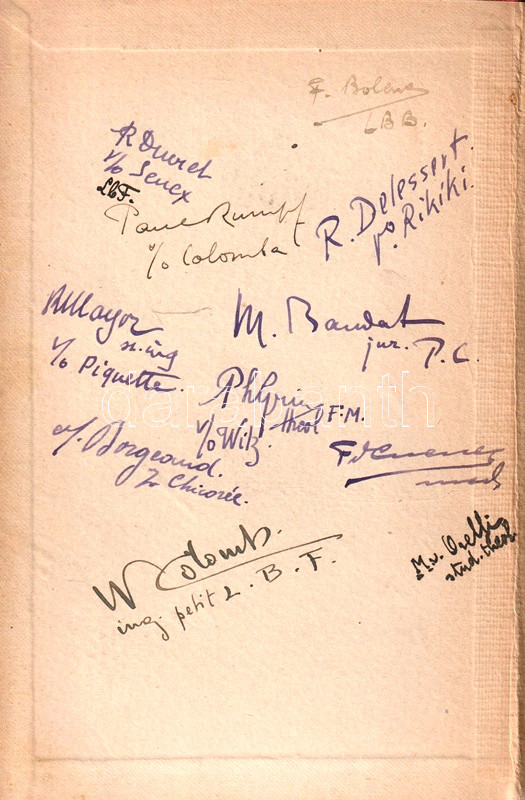 F. Bolens
LBB.
R Duvret
v/o Senex
LbF.
Paul Rumpf
v/o Colomba
R. Delessert.
po. Rikiki.
Mayor
st. ing
v/o Piquette.
M. Baudat
jur. P. C.
Ph
v/o Witz
theol F:M.
Borgeaud.
v/o Chicorée.
W Colomb.
ing. petit 2. B. F.
M.v. Orelli
stud. theol.
darabanth